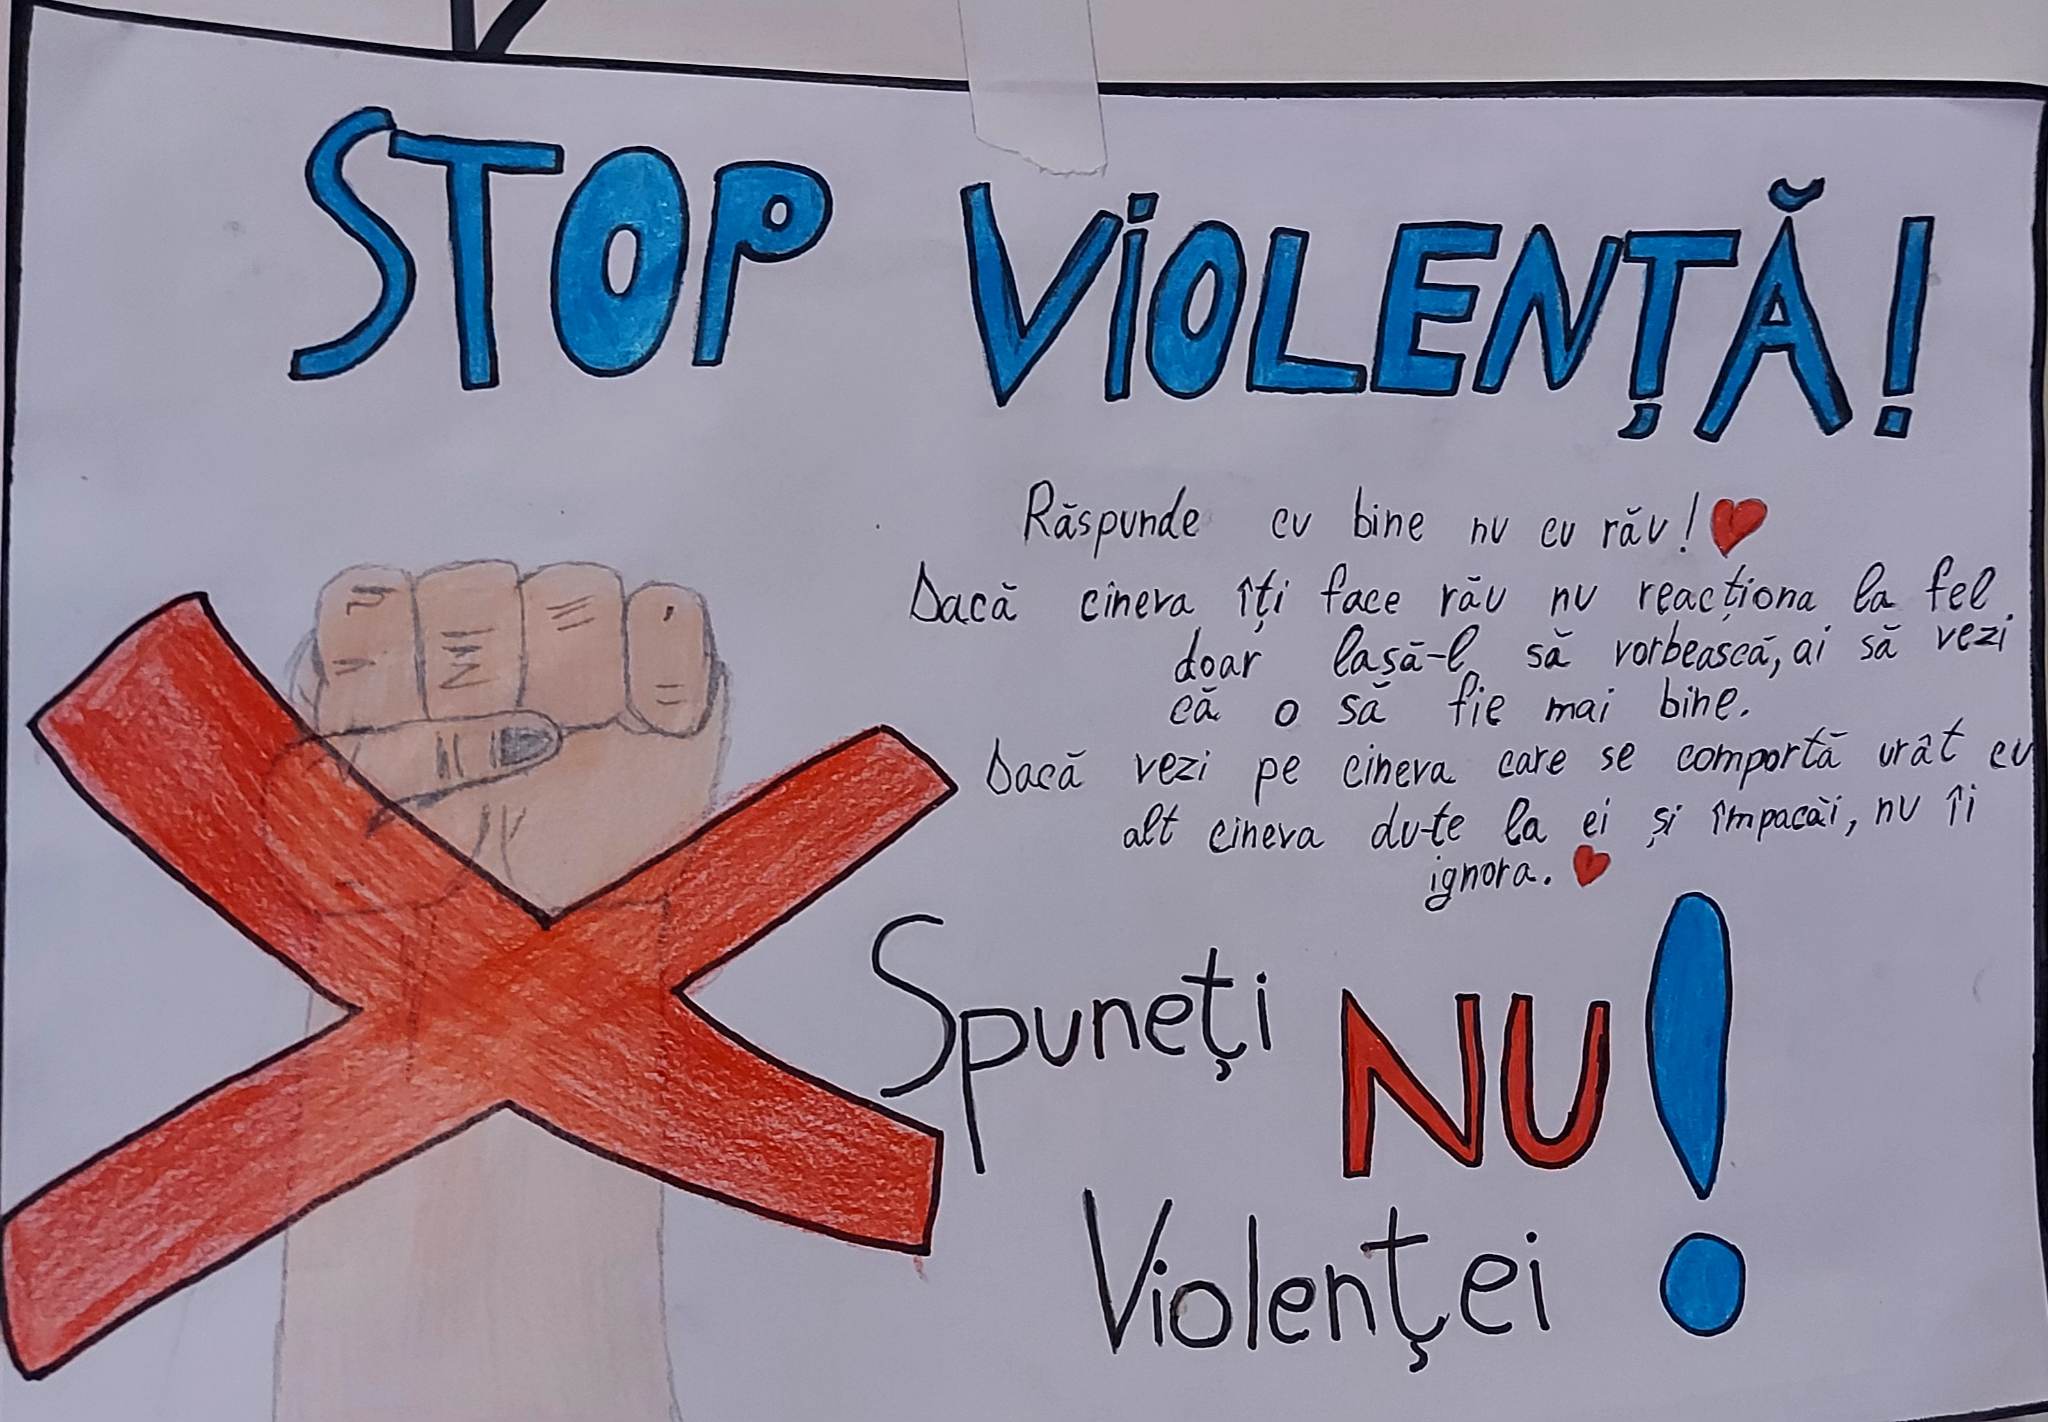 STOP VIOLENȚĂ!
Răspunde cu bine nu cu rău!
Dacă cineva îți face rău nu reacționa la fel,
doar lasă-l să vorbească, ai să vezi
că o să fie mai bine.
Dacă vezi pe cineva care se comportă urât cu
alt cineva du-te la ei și împacăi, nu îi
ignora.
Spuneți NU!
Violenței